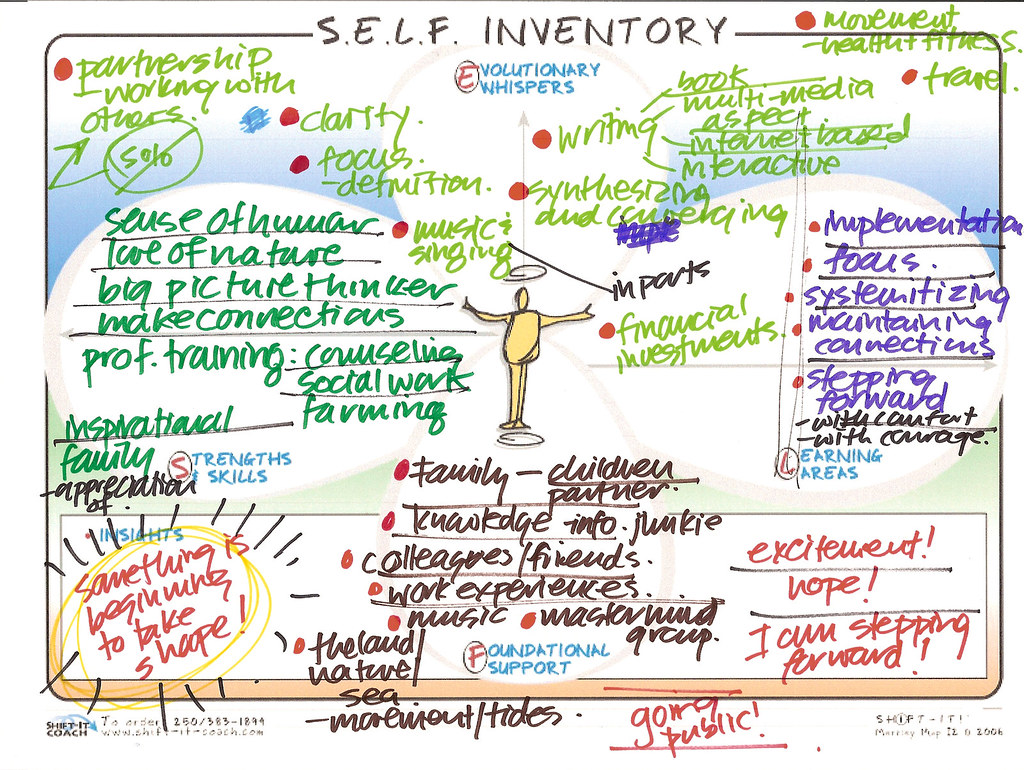 S.E.L.F. INVENTORY
EVOLUTIONARY
WHISPERS
movement
-health fitness.
travel.
partnership
- working with
others.
50%
clarity.
focus.
-definition.
writing
book
multi-media
aspect
internet based
interactive
synthesizing
and converging
music &
singing
in parts
financial
investments.
sense of humor
love of nature
big picture thinker
make connections
prof. training: counseling
social work
farming
inspirational
family
-appreciation
of.
STRENGTHS
& SKILLS
implementation
focus.
systemitizing
maintaining
connections
stepping
forward
- with comfort
- with courage.
LEARNING
AREAS
family - children
partner.
knowledge -info. junkie
colleagues/friends.
work experiences.
music
mastermind
group.
the land/
nature/
sea
-movement/tides.
FOUNDATIONAL
SUPPORT
INSIGHTS
something is
beginning
to take
shape!
excitement!
hope!
I am stepping
forward!
going
public!
SHIFT-IT
COACH
To order 250/383-1844
www.shift-it-coach.com
SHIFT-IT!
2006